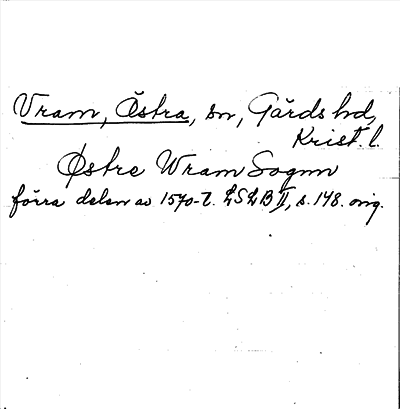 Vram, Östra, sn, Gärds hd,
Krist. l.
Østre Wram Sognn
förra delen av 1570-t. LSLB II, s. 148. orig.